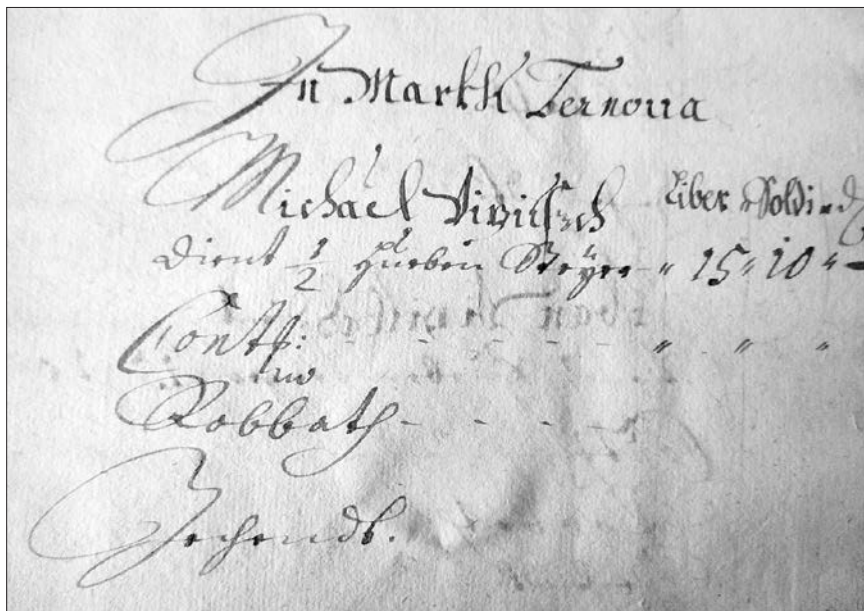 In Markh Ternoua
Michäel Liber Soldi
Dient 1/2 Hueben Steÿer " 15 " 10 " –
Contf: - - - - - " - " - "
Robbath - - - -
Zechendt.